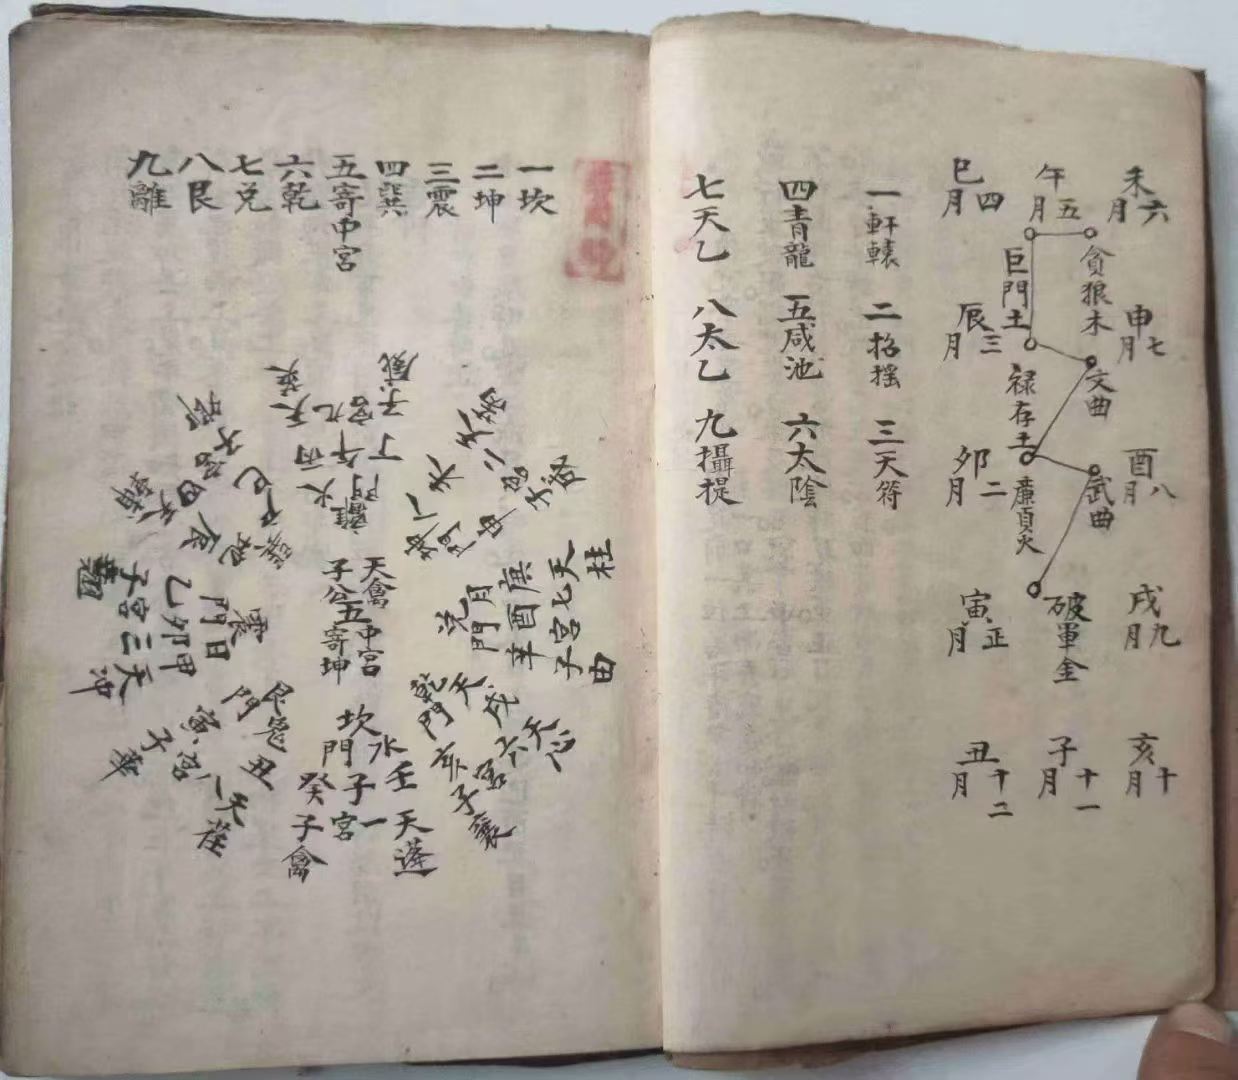 未六月
午五月
巳四月
貪狼木
巨門土
申七月
辰三月
文曲
禄存土
酉八月
卯二月
武曲
廉貞火
戌九月
寅正月
破軍金
亥十月
子十一月
丑十二月
一軒轅 二招摇 三天符
四青龍 五咸池 六太陰
七天乙 八太乙 九攝提
一坎
二坤
三震
四巽
五寄中宮
六乾
七兌
八艮
九離
天英
九宮
子威
丙午丁
離門火
天禽
子公五中宮
寄坤
天柱
七宮
子由
庚酉辛
兌門月
天心
六宮
子襄
戌亥
乾門天
坎門水
壬子癸
天蓬
一宮
子禽
艮門鬼
丑寅
八宮
天冲
三宮子翹
甲卯乙
震門日
四宮
辰巳